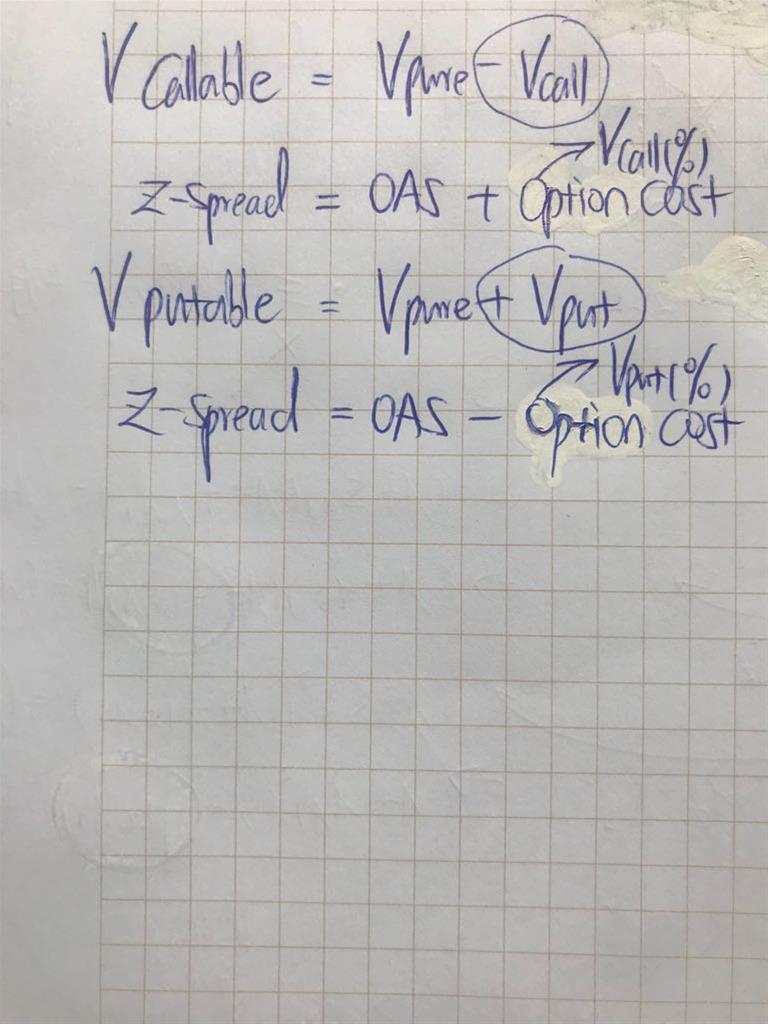 V Callable = Vpure - Vcall
Vcall(%)
Z-spread = OAS + Option Cost
V putable = Vpure + Vput
Vput(%)
Z-spread = OAS - Option Cost